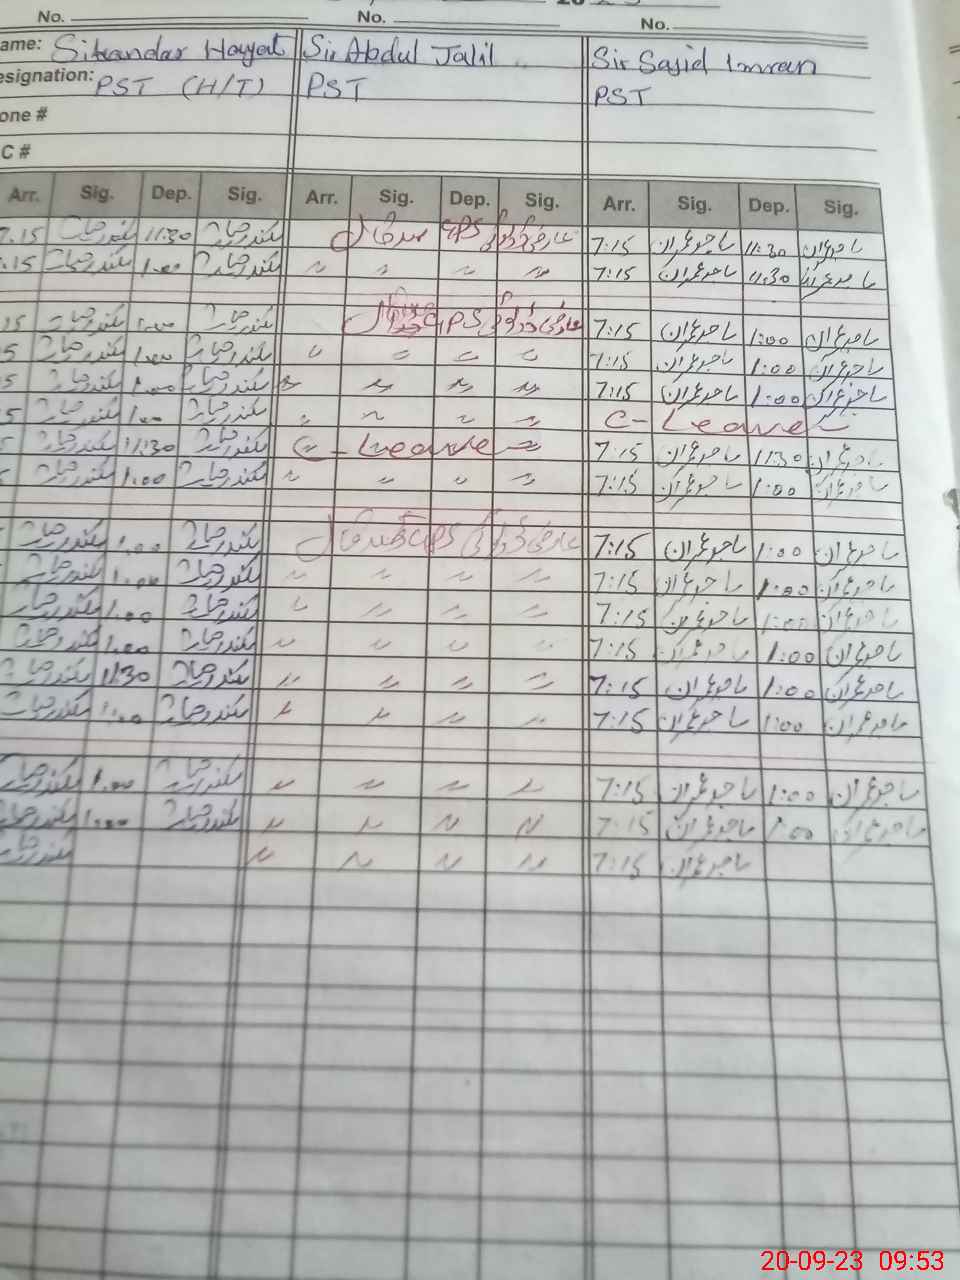 No. No. No.
ame: Sikandar Hayat Sir Abdul Jalil Sir Sajid Imran
esignation: PST (H/T) PST PST
one #
C #
Arr. Sig. Dep. Sig. Arr. Sig. Dep. Sig. Arr. Sig. Dep. Sig.
7.15 سکندر حیات 11:30 سکندر حیات عارضی ڈیوٹی GPS 7:15 ساجد عمران 11:30 ساجد عمران
.15 سکندر حیات 1:00 سکندر حیات 〃 〃 〃 〃 7:15 ساجد عمران 11:30 ساجد عمران
15 سکندر حیات 1:00 سکندر حیات عارضی ڈیوٹی GPS 7:15 ساجد عمران 1:00 ساجد عمران
5 سکندر حیات 1:00 سکندر حیات 〃 〃 〃 〃 7:15 ساجد عمران 1:00 ساجد عمران
5 سکندر حیات 1:00 سکندر حیات 〃 〃 〃 〃 7:15 ساجد عمران 1:00 ساجد عمران
5 سکندر حیات 1:00 سکندر حیات 〃 〃 〃 〃 C- Leave
5 سکندر حیات 11:30 سکندر حیات C- Leave 7:15 ساجد عمران 11:30 ساجد عمران
سکندر حیات 1:00 سکندر حیات 〃 〃 〃 〃 7:15 ساجد عمران 1:00 ساجد عمران
سکندر حیات 1:00 سکندر حیات عارضی ڈیوٹی GPS 7:15 ساجد عمران 1:00 ساجد عمران
سکندر حیات 1:00 سکندر حیات 〃 〃 〃 〃 7:15 ساجد عمران 1:00 ساجد عمران
سکندر حیات 1:00 سکندر حیات 〃 〃 〃 〃 7:15 ساجد عمران 1:00 ساجد عمران
سکندر حیات 1:00 سکندر حیات 〃 〃 〃 7:15 ساجد عمران 1:00 ساجد عمران
سکندر حیات 11:30 سکندر حیات 〃 〃 〃 〃 7:15 ساجد عمران 1:00 ساجد عمران
سکندر حیات 1:00 سکندر حیات 〃 〃 〃 〃 7:15 ساجد عمران 1:00 ساجد عمران
سکندر حیات 1:00 سکندر حیات 〃 〃 〃 〃 7:15 ساجد عمران 1:00 ساجد عمران
سکندر حیات 1:00 سکندر حیات 〃 〃 〃 〃 7:15 ساجد عمران 1:00 ساجد عمران
سکندر حیات 〃 〃 〃 〃 7:15 ساجد عمران
20-09-23 09:53